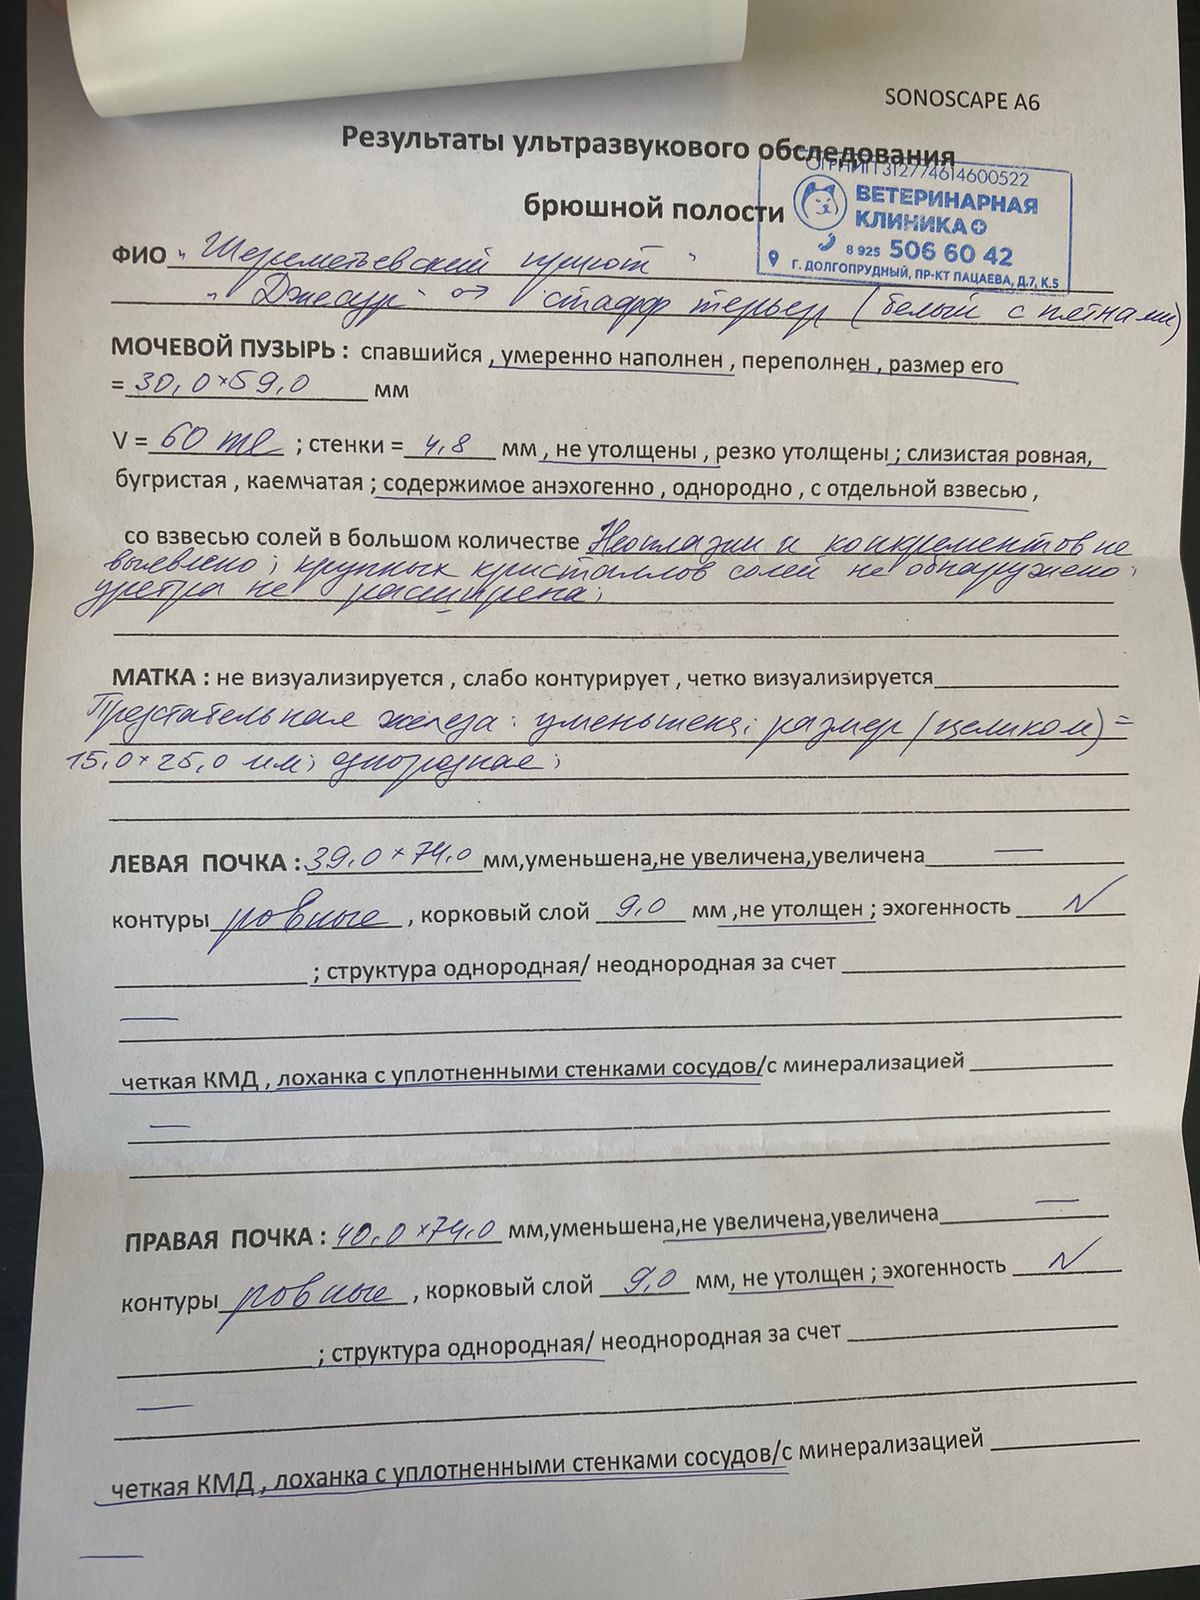 SONOSCAPE A6
Результаты ультразвукового обследования
брюшной полости
ОГРНИП 312774614600522
ВЕТЕРИНАРНАЯ
КЛИНИКА
8 925 506 60 42
Г. ДОЛГОПРУДНЫЙ, ПР-КТ ПАЦАЕВА, Д.7, К.5
ФИО „Шереметьевский приют"
стафф терьер (белый с пятнами)
МОЧЕВОЙ ПУЗЫРЬ : спавшийся , умеренно наполнен , переполнен , размер его
= 30,0×59,0 мм
V = 60 ; стенки = 4,8 мм , не утолщены , резко утолщены ; слизистая ровная,
бугристая , каемчатая ; содержимое анэхогенно , однородно , с отдельной взвесью ,
со взвесью солей в большом количестве Неоплазии и конкрементов не
выявлено ; крупных кристаллов солей не обнаружено ;
уретра не расширена ;
МАТКА : не визуализируется , слабо контурирует , четко визуализируется
Предстательная железа : уменьшена ; размер (целиком) =
15,0×25,0 мм ; однородная ;
ЛЕВАЯ ПОЧКА : 39,0×74,0 мм,уменьшена,не увеличена,увеличена —
контуры ровные , корковый слой 9,0 мм ,не утолщен ; эхогенность N
; структура однородная/ неоднородная за счет
—
четкая КМД , лоханка с уплотненными стенками сосудов/с минерализацией
—
ПРАВАЯ ПОЧКА : 40,0×74,0 мм,уменьшена,не увеличена,увеличена —
контуры ровные , корковый слой 9,0 мм, не утолщен ; эхогенность N
; структура однородная/ неоднородная за счет
—
четкая КМД , лоханка с уплотненными стенками сосудов/с минерализацией
—